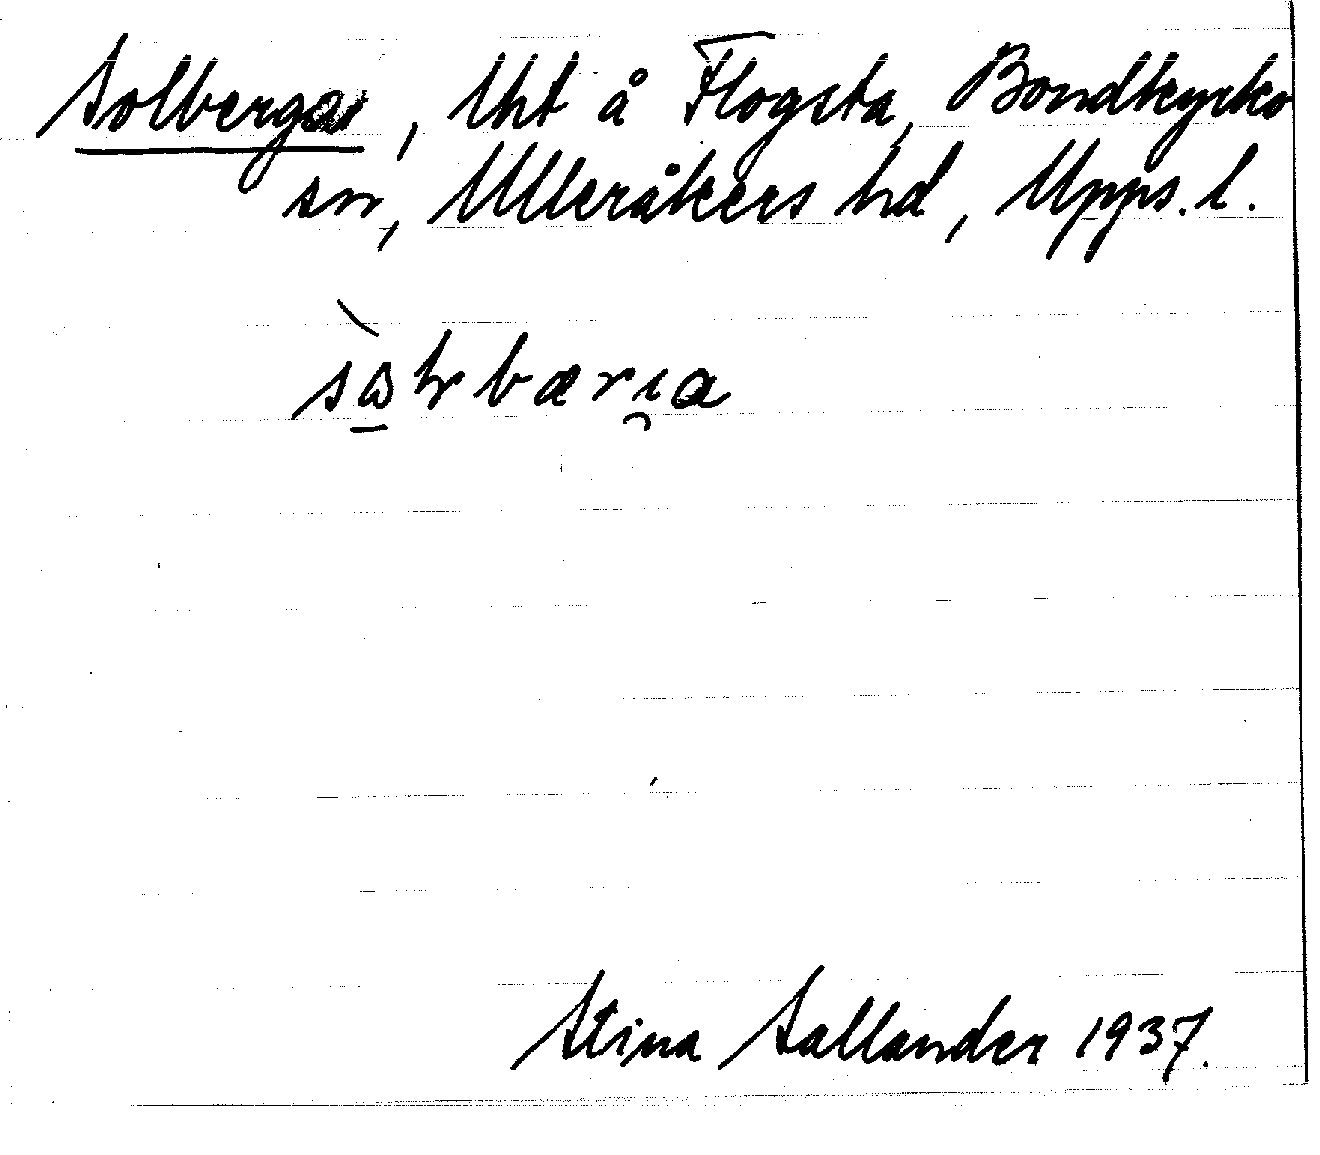 Solberga, lht å Flogsta, Bondkyrko
sn, Ulleråkers hd, Upps. l.
Stina Sallander 1937.